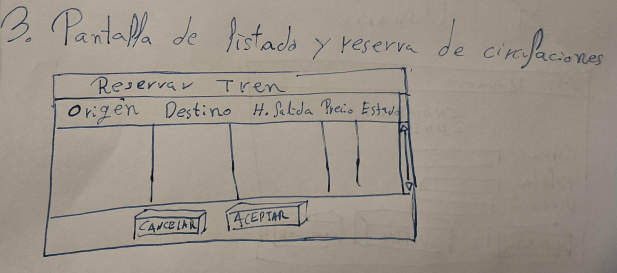 3. Pantalla de listado y reserva de circulaciones
Reservar Tren
Origen Destino H. Salida Precio Estado
CANCELAR ACEPTAR